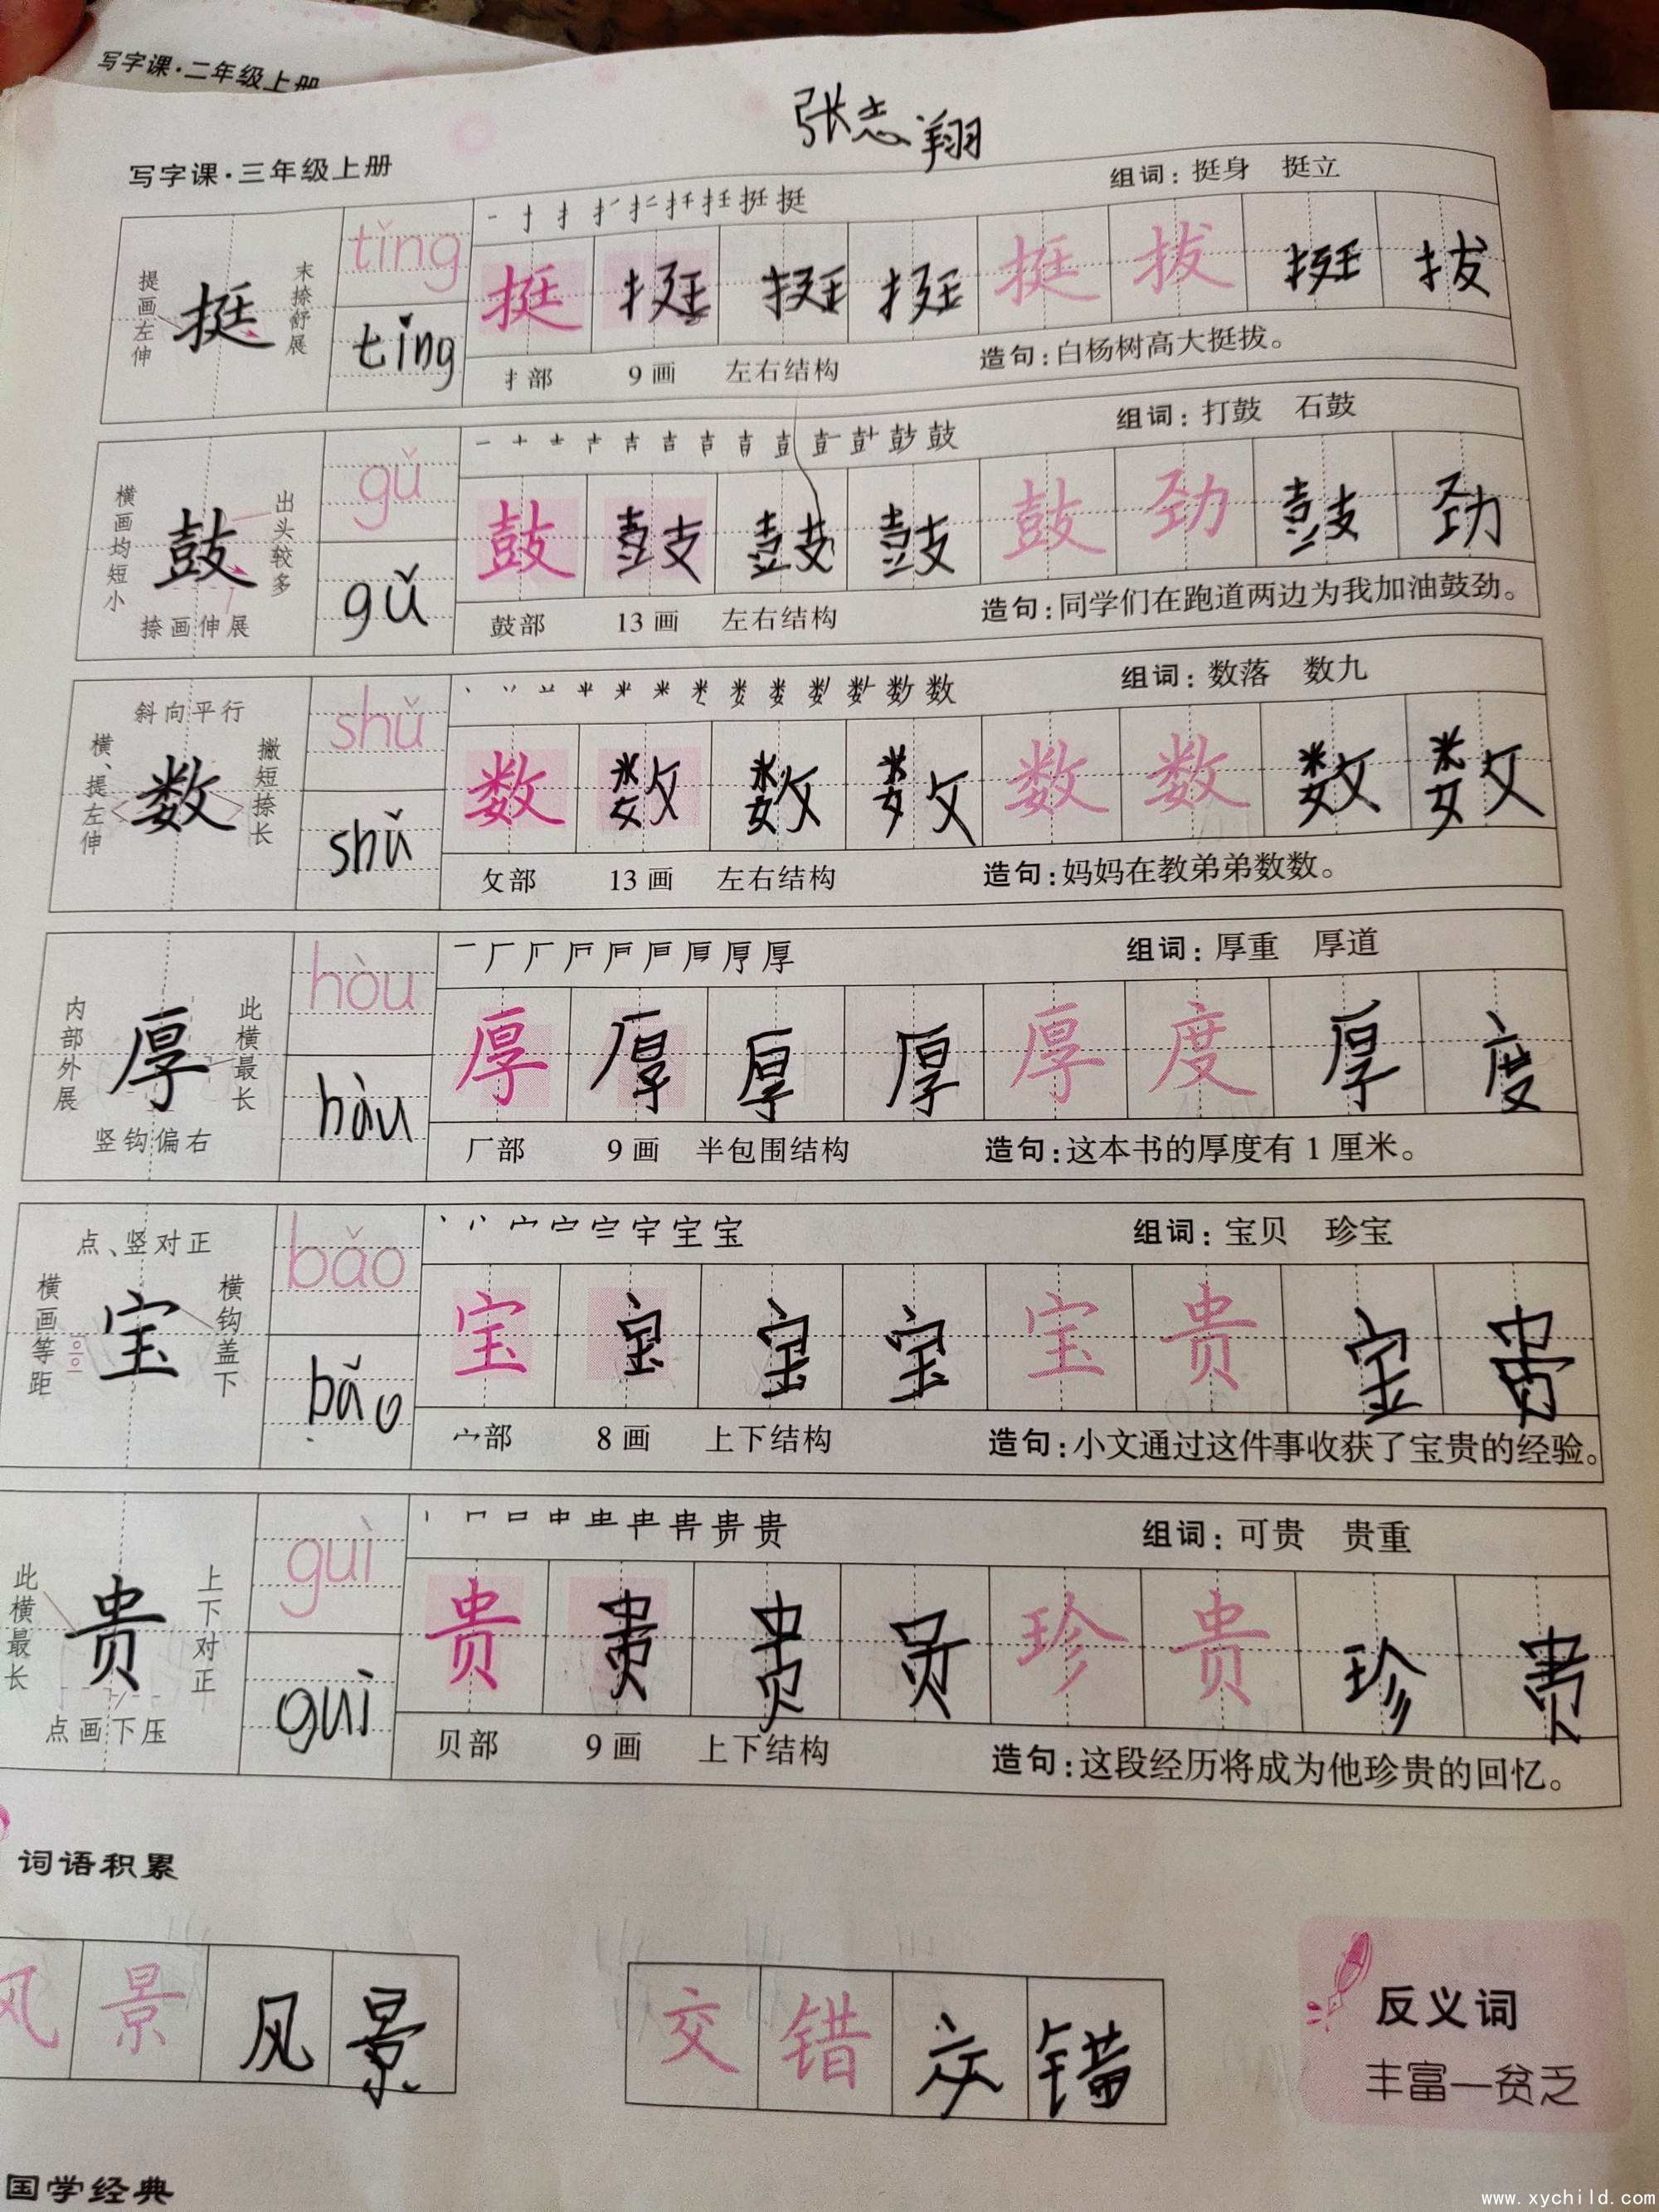 写字课·二年级上册
张志翔
写字课·三年级上册
组词：挺身 挺立
提画左伸 挺 末捺舒展 tǐng 挺 挺 挺 挺 挺 拔 挺 拔
tǐng
扌部 9画 左右结构 造句：白杨树高大挺拔。
组词：打鼓 石鼓
横画均短小 鼓 出头较多 捺画伸展 gǔ 鼓 鼓 鼓 鼓 鼓 劲 鼓 劲
gǔ
鼓部 13画 左右结构 造句：同学们在跑道两边为我加油鼓劲。
组词：数落 数九
斜向平行 横、提左伸 数 撇短捺长 shǔ 数 数 数 数 数 数 数 数
shǔ
攵部 13画 左右结构 造句：妈妈在教弟弟数数。
组词：厚重 厚道
内部外展 厚 此横最长 竖钩偏右 hòu 厚 厚 厚 厚 厚 度 厚 度
hòu
厂部 9画 半包围结构 造句：这本书的厚度有1厘米。
组词：宝贝 珍宝
点、竖对正 横画等距 宝 横钩盖下 bǎo 宝 宝 宝 宝 宝 贵 宝 贵
bǎo
宀部 8画 上下结构 造句：小文通过这件事收获了宝贵的经验。
组词：可贵 贵重
此横最长 贵 上下对正 点画下压 guì 贵 贵 贵 贵 珍 贵 珍 贵
guì
贝部 9画 上下结构 造句：这段经历将成为他珍贵的回忆。
词语积累
风 景 风 景 交 错 交 错
反义词
丰富—贫乏
国学经典
www.xychild.com